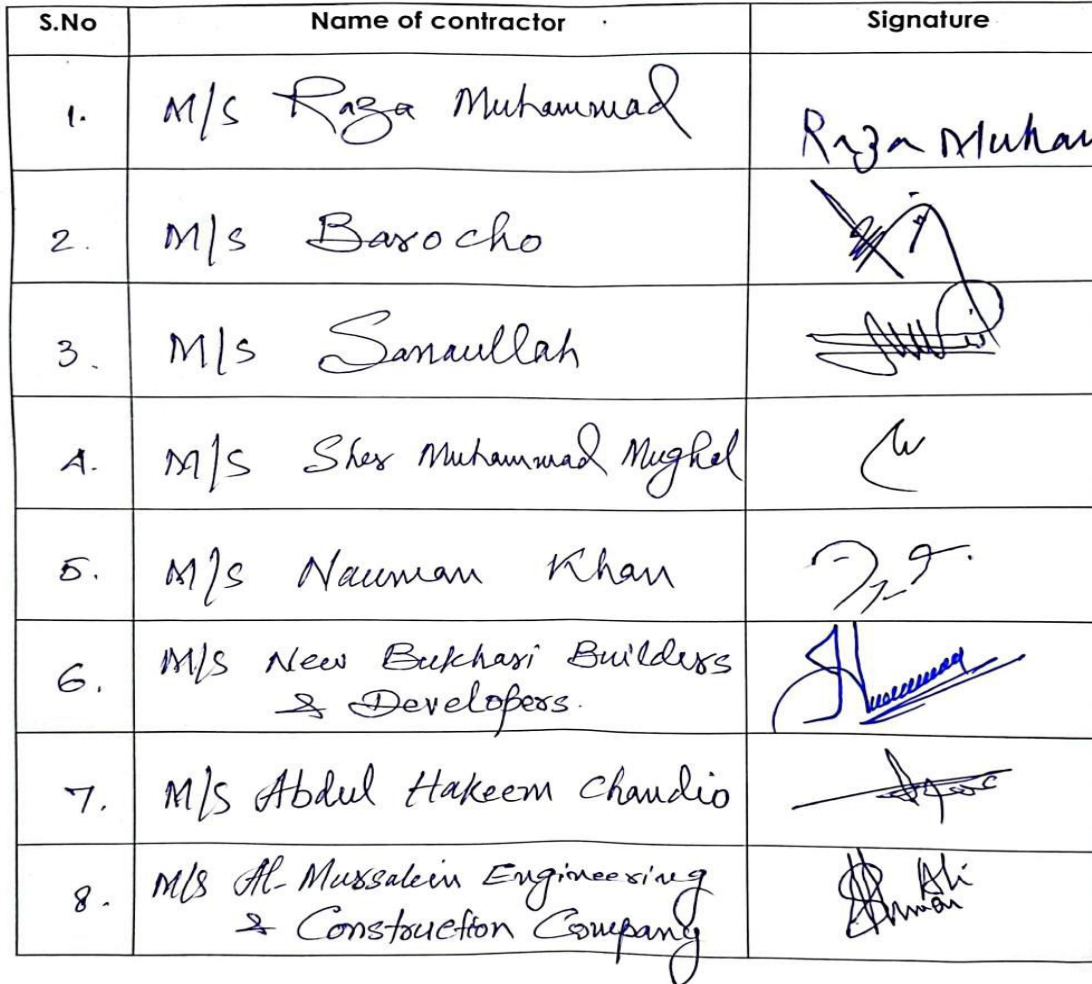 S.No Name of contractor Signature
1. M/S Raza Muhammad Raza Muham
2. M/S Barocho
3. M/S Sanaullah
4. M/S Sher Muhammad Mughal
5. M/S Nauman Khan
6. M/S New Bukhari Builders
& Developers.
7. M/S Abdul Hakeem Chandio
8. M/S Al-Mursalein Engineering
& Construction Company
Ali